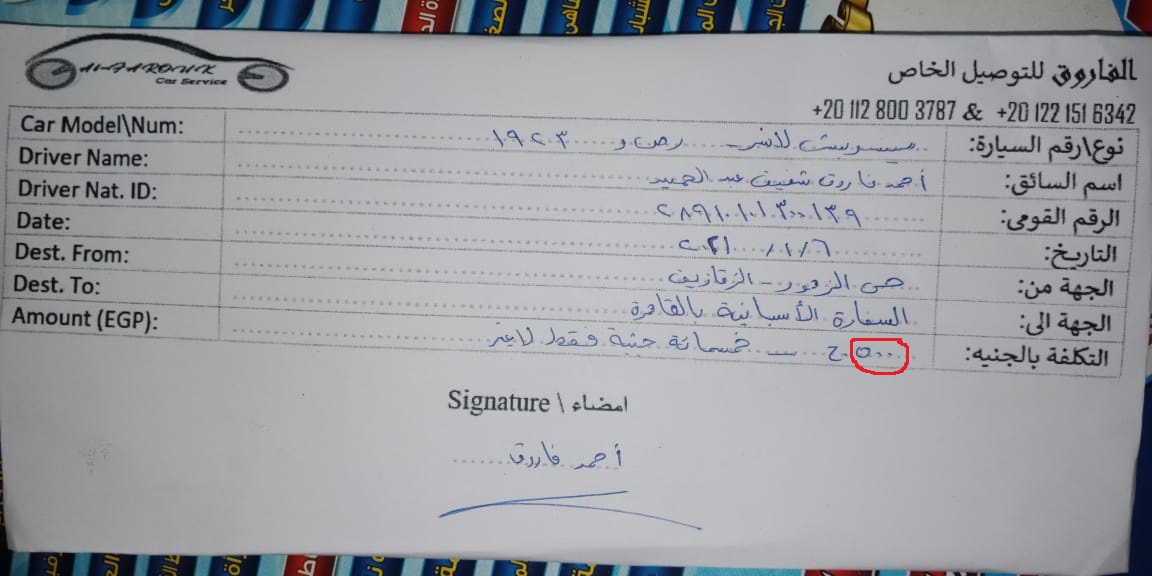 AL-FAROUK
Car Service
الفاروق للتوصيل الخاص
+20 112 800 3787 & +20 122 151 6342
Car Model\Num: ميسوبيشى لانسر رص و ١٩٢٠٣ نوع\رقم السيارة:
Driver Name: أحمد فاروق شفيق عبد الحميد اسم السائق:
Driver Nat. ID: ٢٨٩١٠١٠١٣٠٠١٣٩ الرقم القومى:
Date: ٢٠٢١/١/٦ التاريخ:
Dest. From: حى الزهور - الزقازيق الجهة من:
Dest. To: السفارة الأسبانية بالقاهرة الجهة الى:
Amount (EGP): ٥٠٠ ج — خمسمائة جنية فقط لاغير التكلفة بالجنيه:
Signature \ امضاء
أحمد فاروق